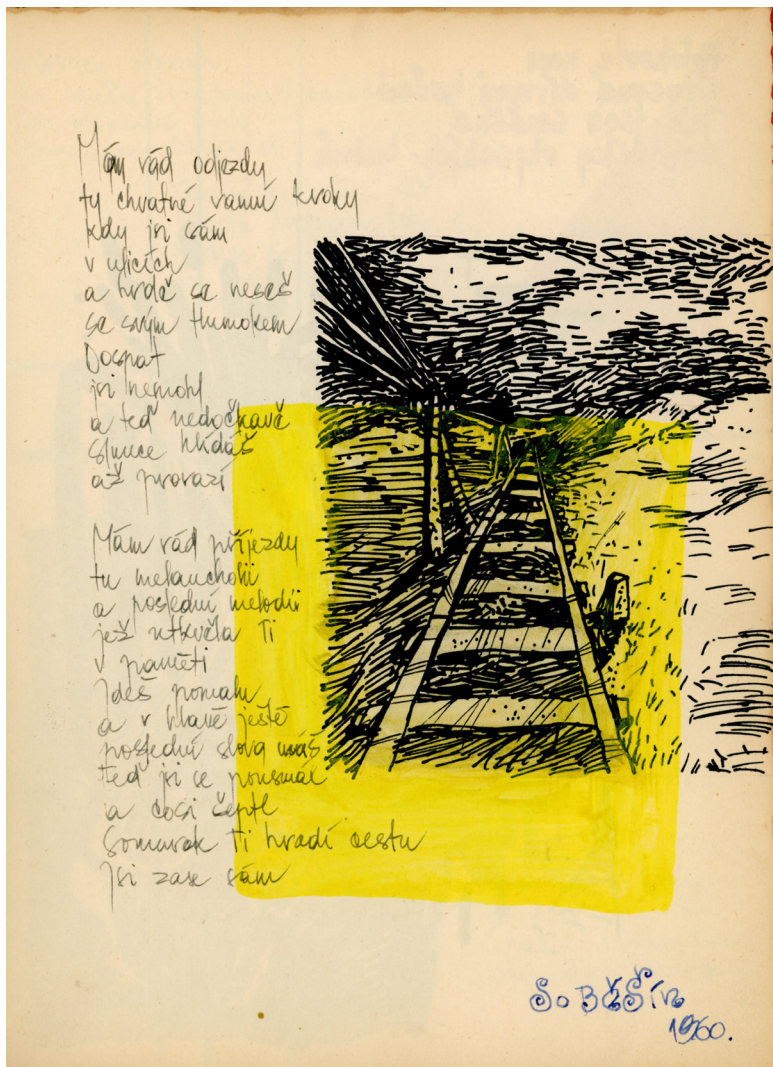 Mám rád odjezdy
ty chvatné ranní kroky
kdy jsi sám
v ulicích
a hrdě se neseš
se svým tlumokem
Dospat
jsi nemohl
a teď nedočkavě
slunce hlídáš
až provazí
Mám rád příjezdy
tu melancholii
a poslední melodii
jež utkvěla Ti
v paměti
Jdeš pomalu
a v hlavě ještě
poslední slova máš
teď jsi se pousmál
a cosi šeptl
Soumrak Ti hradí cestu
Jsi zase sám
SoBĚŠín
1960.